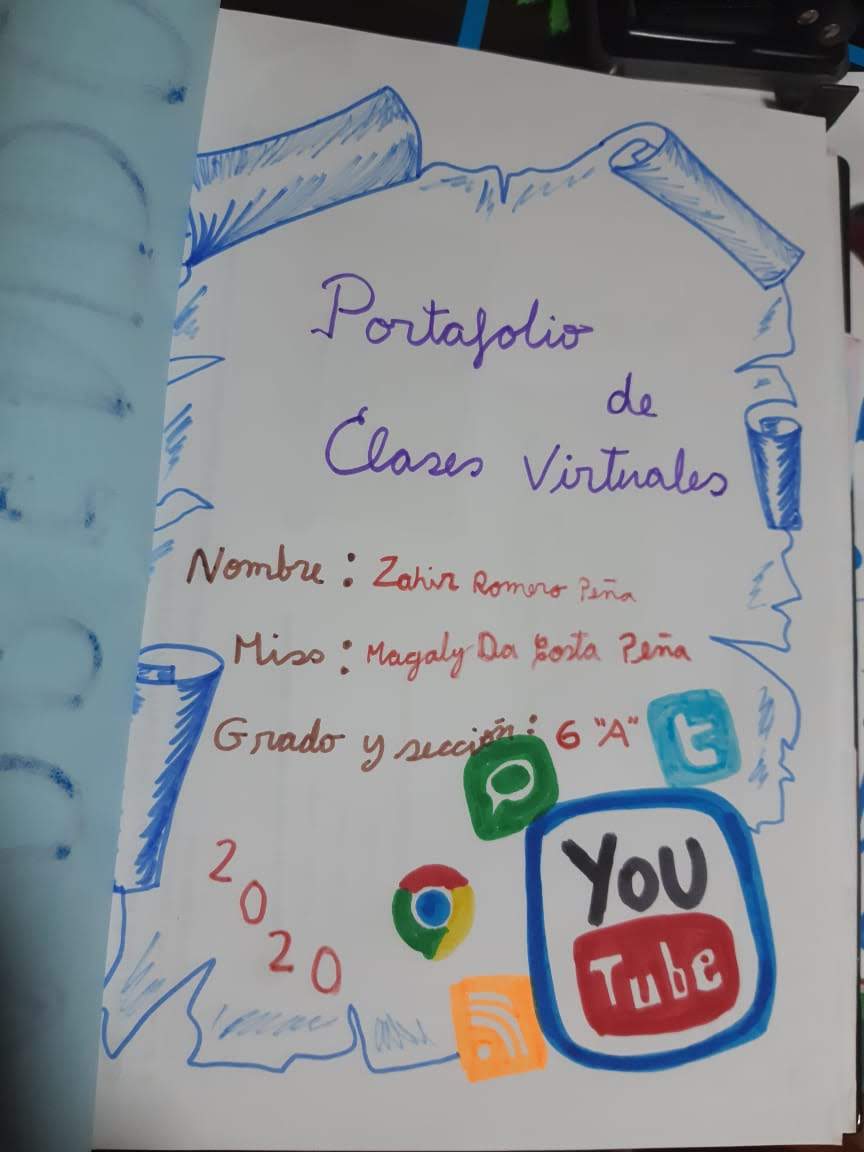 Portafolio
de
Clases Virtuales
Nombre : Zahir Romero Peña
Miss : Magaly Da Costa Peña
Grado y sección : 6 "A"
2020
YOU
Tube